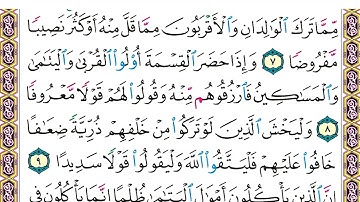 مِّمَّا تَرَكَ ٱلْوَٰلِدَانِ وَٱلْأَقْرَبُونَ مِمَّا قَلَّ مِنْهُ أَوْ كَثُرَ ۚ نَصِيبًا
مَّفْرُوضًا ٧ وَإِذَا حَضَرَ ٱلْقِسْمَةَ أُو۟لُوا۟ ٱلْقُرْبَىٰ وَٱلْيَتَٰمَىٰ
وَٱلْمَسَٰكِينُ فَٱرْزُقُوهُم مِّنْهُ وَقُولُوا۟ لَهُمْ قَوْلًا مَّعْرُوفًا
٨ وَلْيَخْشَ ٱلَّذِينَ لَوْ تَرَكُوا۟ مِنْ خَلْفِهِمْ ذُرِّيَّةً ضِعَٰفًا
خَافُوا۟ عَلَيْهِمْ فَلْيَتَّقُوا۟ ٱللَّهَ وَلْيَقُولُوا۟ قَوْلًا سَدِيدًا ٩
إِنَّ ٱلَّذِينَ يَأْكُلُونَ أَمْوَٰلَ ٱلْيَتَٰمَىٰ ظُلْمًا إِنَّمَا يَأْكُلُونَ فِى